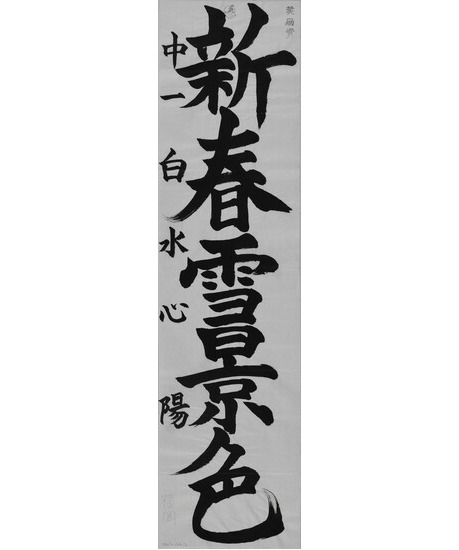 新春雪景色
中一 白水心陽
奨励賞